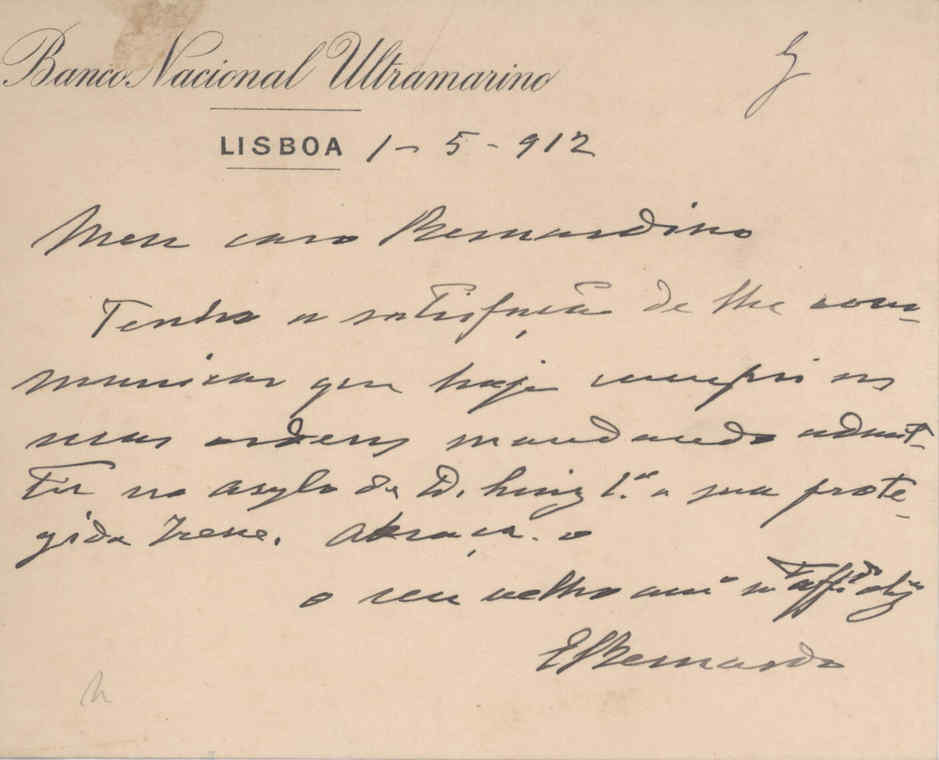 Banco Nacional Ultramarino
LISBOA 1-5-912
Meu caro Bernardino
Tenho a satisfação de lhe com-
municar que hoje cumpri as
suas ordens mandando admit-
tir no asylo de D. Luiz 1.º a sua prote-
gida Irene. Abraça-o
o seu velho am.º m.to aff.do
E Bernardo